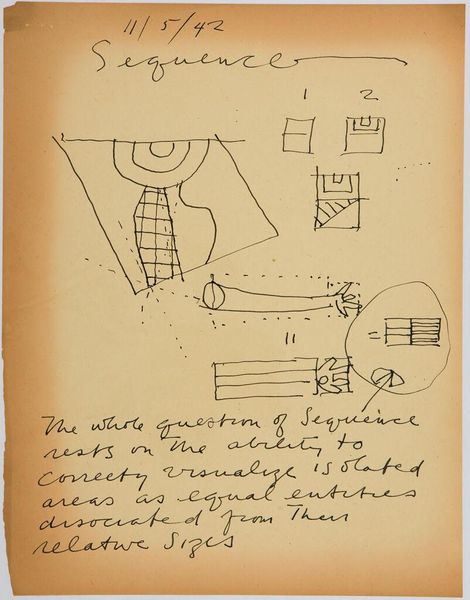 11/5/42
Sequence
1 2
The whole question of Sequence
rests on The ability to
correcty visualize isolated
areas as equal entities
disociated from Their
relative Sizes